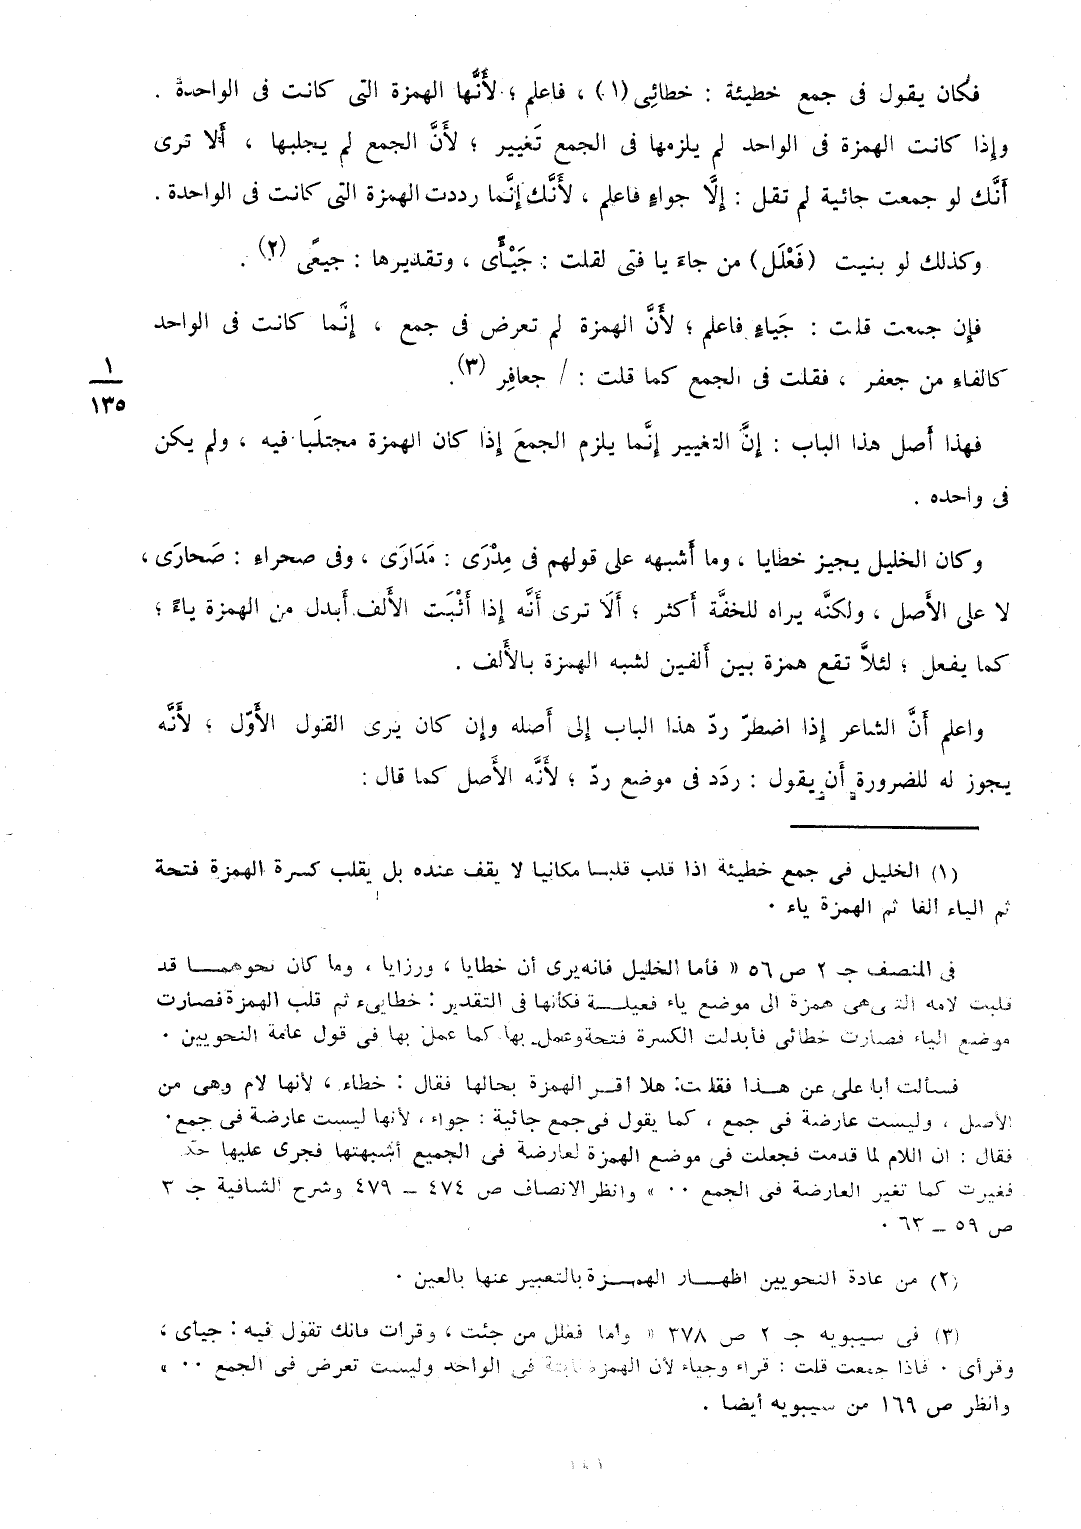 فكان يقول فى جمع خطيئة : خطائِى (١) ، فاعلم ؛ لأَنَّها الهمزة التى كانت فى الواحدة .
وإذا كانت الهمزة فى الواحد لم يلزمها فى الجمع تَغيير ؛ لأَنَّ الجمع لم يجلبها ، أَلا ترى
أَنَّك لو جمعت جائية لم تقل : إلَّا جواءٍ فاعلم ، لأَنَّك إنَّما رددت الهمزة التى كانت فى الواحدة .
وكذلك لو بنيت (فَعْلَل) من جاءَ يا فتى لقلت : جَيْأًى ، وتقديرها : جيعًى (٢) .
فإن جمعت قلت : جَياءٍ فاعلم ؛ لأَنَّ الهمزة لم تعرض فى جمع ، إنَّما كانت فى الواحد
كالفاءِ من جعفر ، فقلت فى الجمع كما قلت : / جعافِر (٣) .
١
١٣٥
فهذا أَصل هذا الباب : إنَّ التغيير إنَّما يلزم الجمعَ إذا كان الهمزة مجتلَبا فيه ، ولم يكن
فى واحده .
وكان الخليل يجيز خطايا ، وما أَشبهه على قولهم فى مِدْرَى : مَدَارَى ، وفى صحراءِ : صَحارَى ،
لا على الأَصل ، ولكنَّه يراه للخفَّة أَكثر ؛ أَلَا ترى أَنَّه إذا أَثْبَت الأَلف أَبدل من الهمزة ياءً ؛
كما يفعل ؛ لئلاَّ تقع همزة بين أَلفين لشبه الهمزة بالأَلف .
واعلم أَنَّ الشاعر إذا اضطرّ ردّ هذا الباب إلى أَصله وإن كان يرى القول الأَوّل ؛ لأَنَّه
يجوز له للضرورة أَن يقول : ردَد فى موضع ردّ ؛ لأَنَّه الأَصل كما قال :
(١) الخليل فى جمع خطيئة اذا قلب قلبا مكانيا لا يقف عنده بل يقلب كسرة الهمزة فتحة
ثم الياء الفا ثم الهمزة ياء ٠
فى المنصف جـ ٢ ص ٥٦ « فأما الخليل فانه يرى أن خطايا ، ورزايا ، وما كان نحوهما قد
قلبت لامه التى هى همزة الى موضع ياء فعيلة فكأنها فى التقدير : خطايىء ثم قلب الهمزة فصارت
موضع الياء فصارت خطائى فأبدلت الكسرة فتحة وعمل بها كما عمل بها فى قول عامة النحويين ٠
فسألت أبا على عن هذا فقلت : هلا اقر الهمزة بحالها فقال : خطاء ، لأنها لام وهى من
الأصل ، وليست عارضة فى جمع ، كما يقول فى جمع جائية : جواء ، لأنها ليست عارضة فى جمع ٠
فقال : ان اللام لما قدمت فجعلت فى موضع الهمزة لعارضة فى الجميع أشبهتها فجرى عليها حكمها
فغيرت كما تغير العارضة فى الجمع ٠٠ » وانظر الانصاف ص ٤٧٤ ــ ٤٧٩ وشرح الشافية جـ ٣
ص ٥٩ ــ ٦٣ ٠
(٢) من عادة النحويين اظهار الهمزة بالتعبير عنها بالعين ٠
(٣) فى سيبويه جـ ٢ ص ٣٧٨ « وأما فعلل من جئت ، وقرأت فانك تقول فيه : جيأى ،
وقرأى ٠ فاذا جمعت قلت : قراء وجياء لأن الهمزة ثابتة فى الواحد وليست تعرض فى الجمع ٠٠ »
وانظر ص ١٦٩ من سيبويه أيضا .